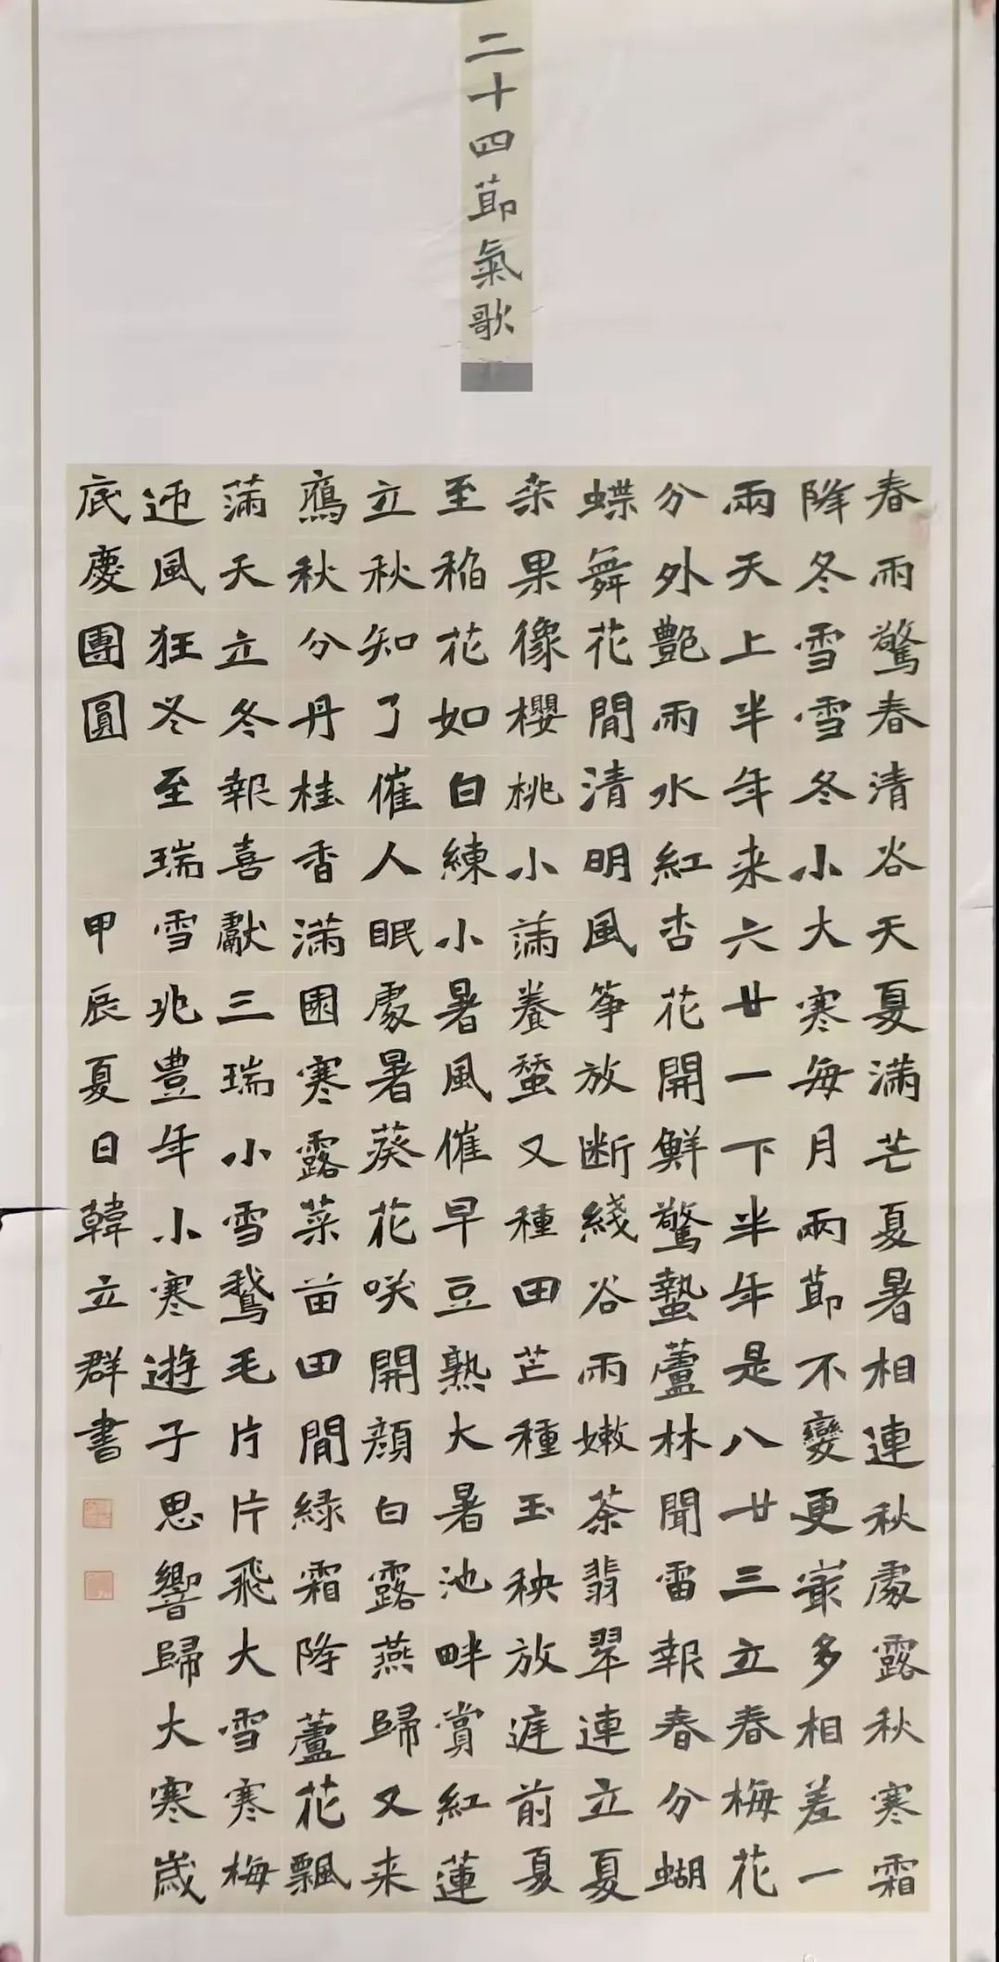 二十四節氣歌
春雨驚春清谷天夏滿芒夏暑相連秋處露秋寒霜
降冬雪雪冬小大寒每月兩節不變更最多相差一
兩天上半年来六廿一下半年是八廿三立春梅花
分外艷雨水紅杏花開鮮驚蟄蘆林聞雷報春分蝴
蝶舞花間清明風筝放断綫谷雨嫩茶翡翠連立夏
桑果像櫻桃小滿養蚕又種田芒種玉秧放庭前夏
至稻花如白練小暑風催早豆熟大暑池畔賞紅蓮
立秋知了催人眠處暑葵花咲開顔白露燕歸又来
鴈秋分丹桂香滿園寒露菜苗田間緑霜降蘆花飄
滿天立冬報喜獻三瑞小雪鵞毛片片飛大雪寒梅
迎風狂冬至瑞雪兆豊年小寒遊子思響歸大寒歲
底慶團圓
甲辰夏日韓立群書